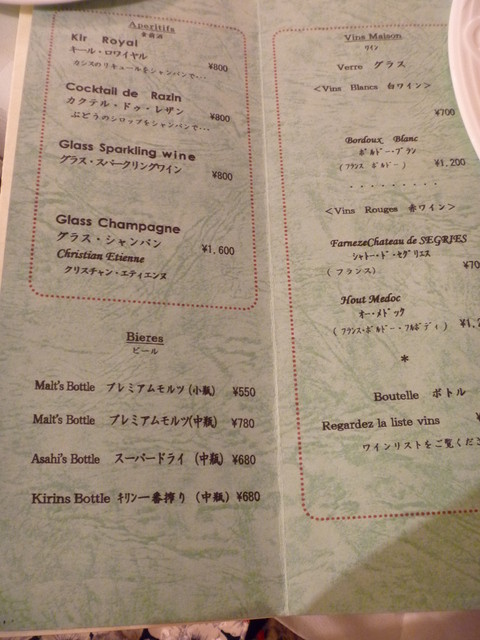 Aperitifs
食前酒
Kir Royal
キール・ロワイヤル ¥800
カシスのリキュールをシャンパンで・・・
Cocktail de Razin
カクテル・ドゥ・レザン ¥800
ぶどうのシロップをシャンパンで・・・
Glass Sparkling wine
グラス・スパークリングワイン ¥800
Glass Champagne
グラス・シャンパン ¥1,600
Christian Etienne
クリスチャン・エティエンヌ
Bieres
ビール
Malt's Bottle プレミアムモルツ (小瓶) ¥550
Malt's Bottle プレミアムモルツ(中瓶) ¥780
Asahi's Bottle スーパードライ (中瓶) ¥680
Kirins Bottle キリン一番搾り (中瓶) ¥680
Vins Maison
ワイン
Verre グラス
<Vins Blancs 白ワイン>
¥700
Bordoux Blanc
ボルドー・ブラン
(フランス ボルドー) ¥1,200
・・・・・・・・・
<Vins Rouges 赤ワイン>
FarnezeChateau de SEGRIES
シャトー・ド・セグリエス
(フランス) ¥70
Hout Medoc
オー・メドック
(フランス・ボルドー・フルボディ) ¥1,2
*
Boutelle ボトル
Regardez la liste vins ¥
ワインリストをご覧くださ